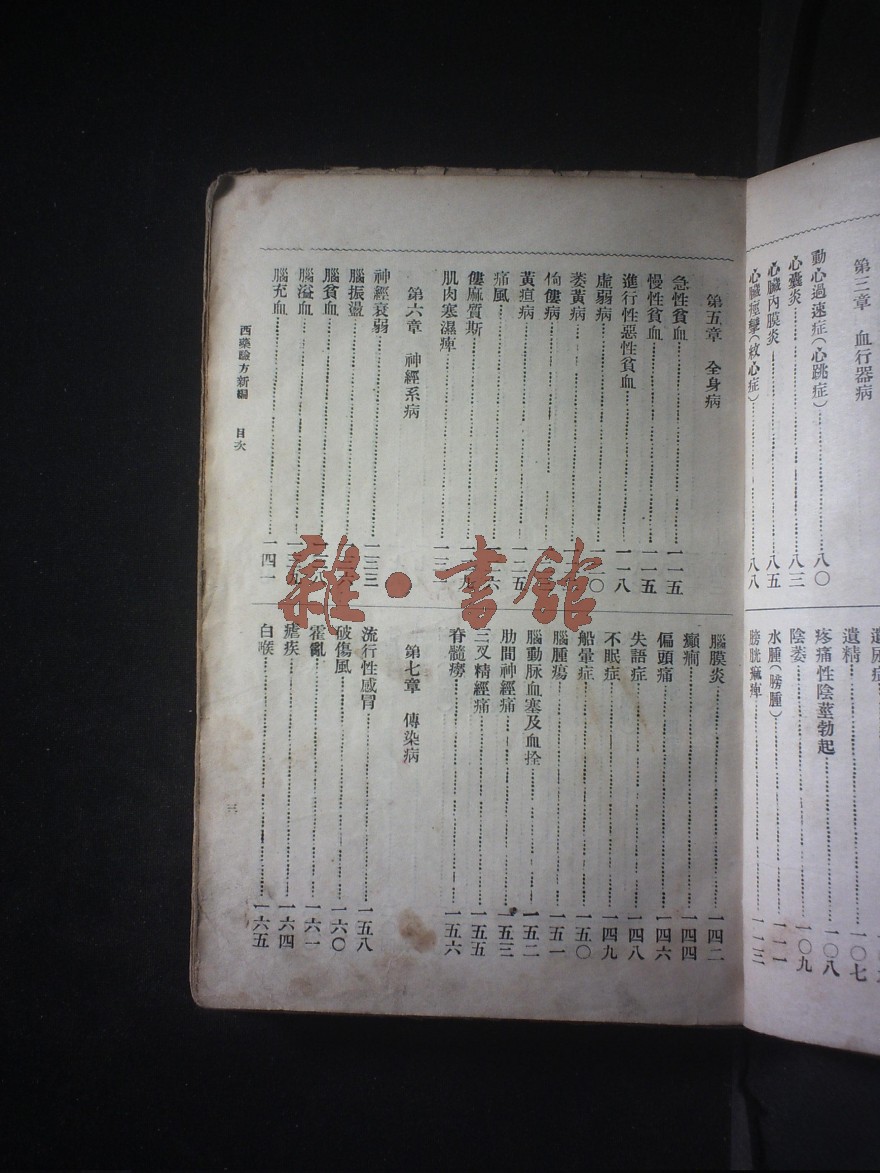 第三章　血行器病
動心過速症(心跳症)……八〇
心囊炎……八三
心臟內膜炎……八五
心臟痙攣(絞心症)……八八
遺精……一〇七
疼痛性陰莖勃起……一〇八
陰萎……一〇九
水腫(膀腫)……一一一
膀胱痲痺……一一三
第五章　全身病
急性貧血……一一五
慢性貧血……一一五
進行性惡性貧血……一一八
虛弱病
萎黃病
佝僂病
黃疸病……一二五
痛風
僂麻質斯
肌肉寒濕痺
第六章　神經系病
神經衰弱……一三三
腦振盪
腦貧血
腦溢血
腦充血……一四一
腦膜炎……一四二
癲癇……一四四
偏頭痛……一四六
失語症……一四八
不眠症……一四九
船暈症……一五〇
腦腫瘍……一五一
腦動脉血塞及血拴……一五二
肋間神經痛……一五三
三叉精經痛……一五五
脊髓癆……一五六
第七章　傳染病
流行性感冒……一五八
破傷風……一六〇
霍亂……一六一
瘧疾……一六四
白喉……一六五
西藥驗方新編　目次
三
雜·書館